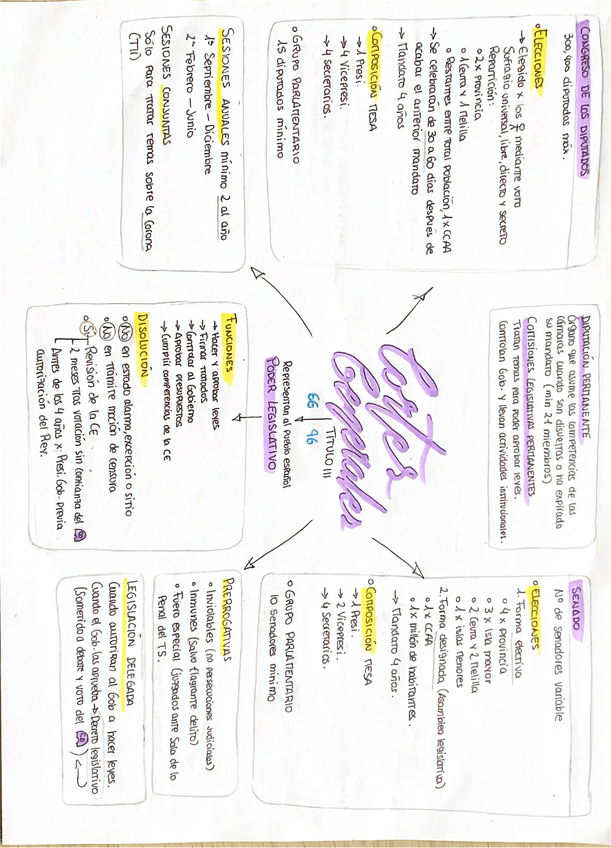 CONGRESO DE LOS DIPUTADOS
300, 400 diputados máx.
• ELECCIONES
→ Elegido x los mediante voto
Sufragio universal, libre, directo y secreto
Repartición:
• 2 x provincia
• 1 Ceuta y 1 Melilla
• Restantes entre total población, 1 x CCAA
→ Se celebrarán de 30 a 60 días después de
acabar el anterior mandato
→ Mandato 4 años
• COMPOSICIÓN MESA
→ 1 Presi.
→ 4 Vicepresi.
→ 4 secretarios.
• GRUPO PARLAMENTARIO
15 diputados mínimo
DIPUTACIÓN PERMANENTE
Órgano que asume las competencias de las
cámaras cuando son disueltas o ha expirado
su mandato (min 21 miembros)
COMISIONES LEGISLATIVAS PERMANENTES
Tratan temas para poder aprobar leyes.
Controlan Gob. y llevan actividades institucionales.
SENADO
Nº de senadores variable
• ELECCIONES
1. Forma electiva
• 4 x provincia
• 3 x isla mayor
• 2 Ceuta y 2 Melilla
• 1 x islas menores
2. Forma designada (Asamblea legislativa)
• 1 x CCAA
• 1 x millón de habitantes.
→ Mandato 4 años.
• COMPOSICIÓN MESA
→ 1 Presi.
→ 2 Vicepresi.
→ 4 secretarios.
• GRUPO PARLAMENTARIO
10 senadores mínimo
Cortes
Generales
TÍTULO III
66 96
Representan al pueblo español
PODER LEGISLATIVO
SESIONES ANUALES mínimo 2 al año
1º Septiembre – Diciembre
2º Febrero – Junio
SESIONES CONJUNTAS
Sólo para tratar temas sobre la Corona
(TII)
FUNCIONES
→ Hacer y aprobar leyes
→ Firmar tratados
→ Controlar al Gobierno
→ Aprobar presupuestos
→ Cumplir competencias de la CE
DISOLUCIÓN
• NO en estado alarma, excepción o sitio
• NO en trámite moción de censura
• SÍ Revisión de la CE
2 meses tras votación sin confianza del
Antes de los 4 años x Presi. Gob. previa
autorización del Rey.
PRERROGATIVAS
• Inviolables (no persecuciones judiciales)
• Inmunes (salvo flagrante delito)
• Fuero especial (juzgados ante Sala de lo
Penal del T.S.
LEGISLACIÓN DELEGADA
Cuando autorizan al Gob a hacer leyes.
Cuando el Gob. las aprueba → Decreto legislativo
(Sometido a debate y voto del ) ←